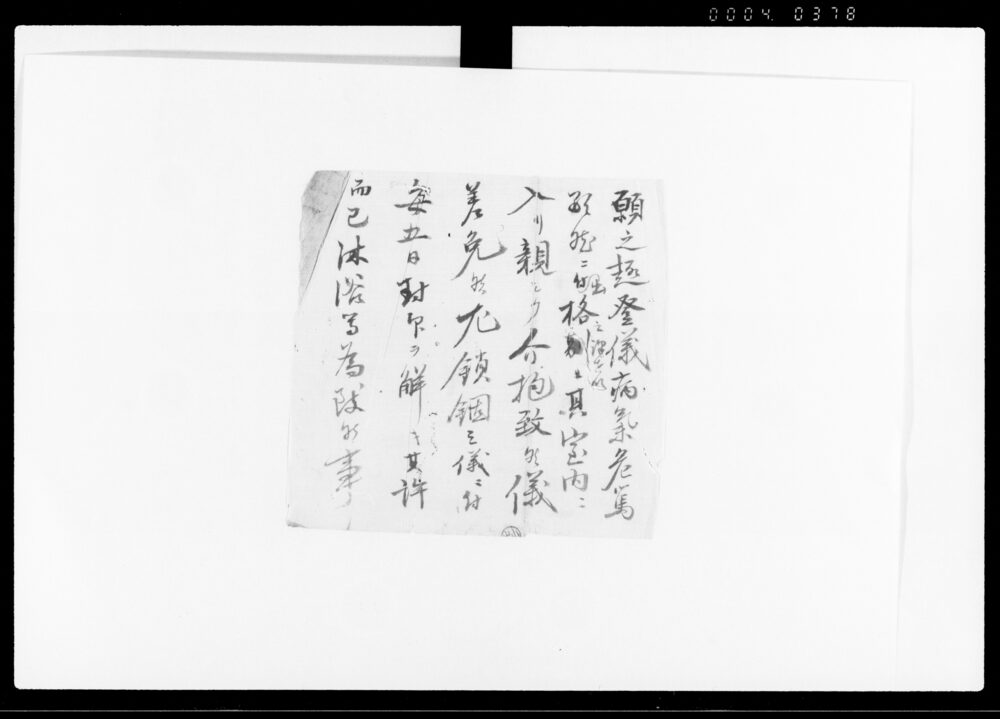 0004. 0378
願之趣登儀病氣危篤
ニ付格其室内ニ
入リ親シク介抱致候儀
差免候尤鎖錮之儀ニ付
毎五日對印ヲ解キ其許
而已沐浴等為致候事